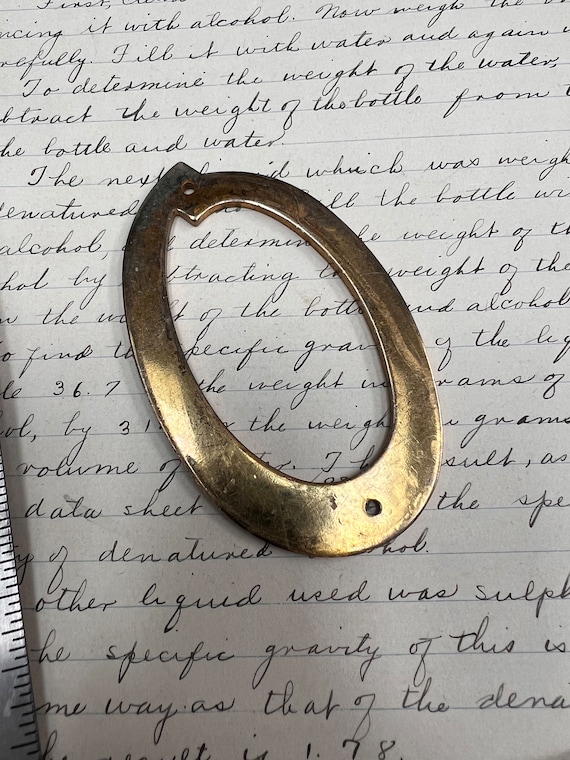 First,
ncing it with alcohol. Now weigh the
refully. Fill it with water and again
To determine the weight of the water,
btract the weight of the bottle from
he bottle and water.
The next id which was weigh
denatured ill the bottle wi
alcohol, determin e weight of t
hol by tracting weight of the
the w t of the bott nd alcohol
o find th pecific grav y of the liq
le 36.7 the weight in rams of
ol, by 31. r the weigh grams
volume of T sult, as
data sheet the spe
y of denatured hol.
other liquid used was sulph
he specific gravity of this is
me way as that of the dena
result is 1.78.